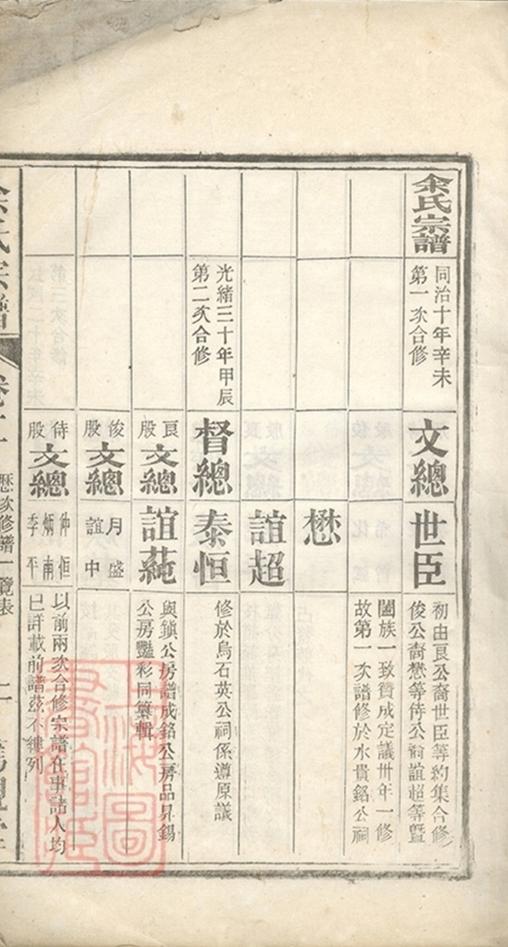 余氏宗譜
同治十年辛未
第一次合修
文總 世臣
初由良公裔世臣等約集合修
俊公裔懋等侍公裔誼超等暨
闔族一致贊成定議卅年一修
故第一次譜修於水貴銘公祠
懋
誼超
光緒三十年甲辰
第二次合修
督總 泰恒
修於烏石英公祠係遵原議
良股 文總 誼蒓
與鎮公房譜成銘公房品昇錫
公房豔彩同纂輯
俊股 文總 月盛 誼中
侍股 文總 仲恒 炳南 季平
以前兩次合修宗譜在事諸人均
已詳載前譜茲不縷列
歷次修譜一覽表
上海圖書館藏